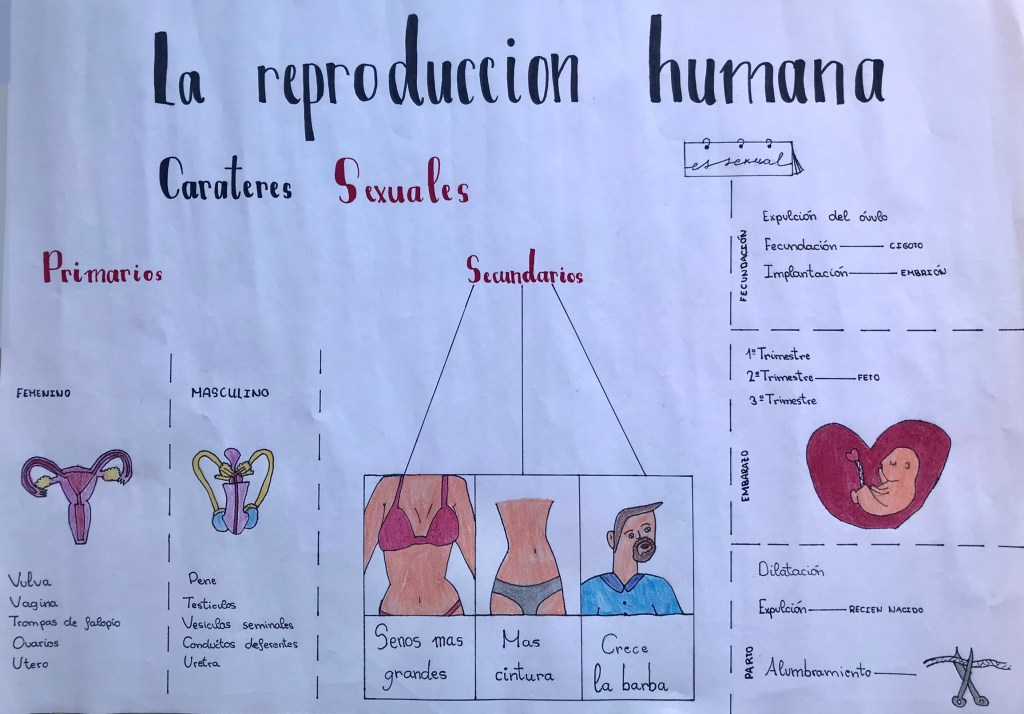 La reproduccion humana
Carateres Sexuales
es sexual
Primarios
Secundarios
FEMENINO
MASCULINO
Vulva
Vagina
Trompas de falopio
Ovarios
Utero
Pene
Testiculos
Vesiculas seminales
Conductos deferentes
Uretra
Senos mas
grandes
Mas
cintura
Crece
la barba
FECUNDACIÓN
Expulción del óvulo
Fecundación CIGOTO
Implantación EMBRIÓN
EMBARAZO
1º Trimestre
2º Trimestre FETO
3º Trimestre
PARTO
Dilatación
Expulción RECIEN NACIDO
Alumbramiento